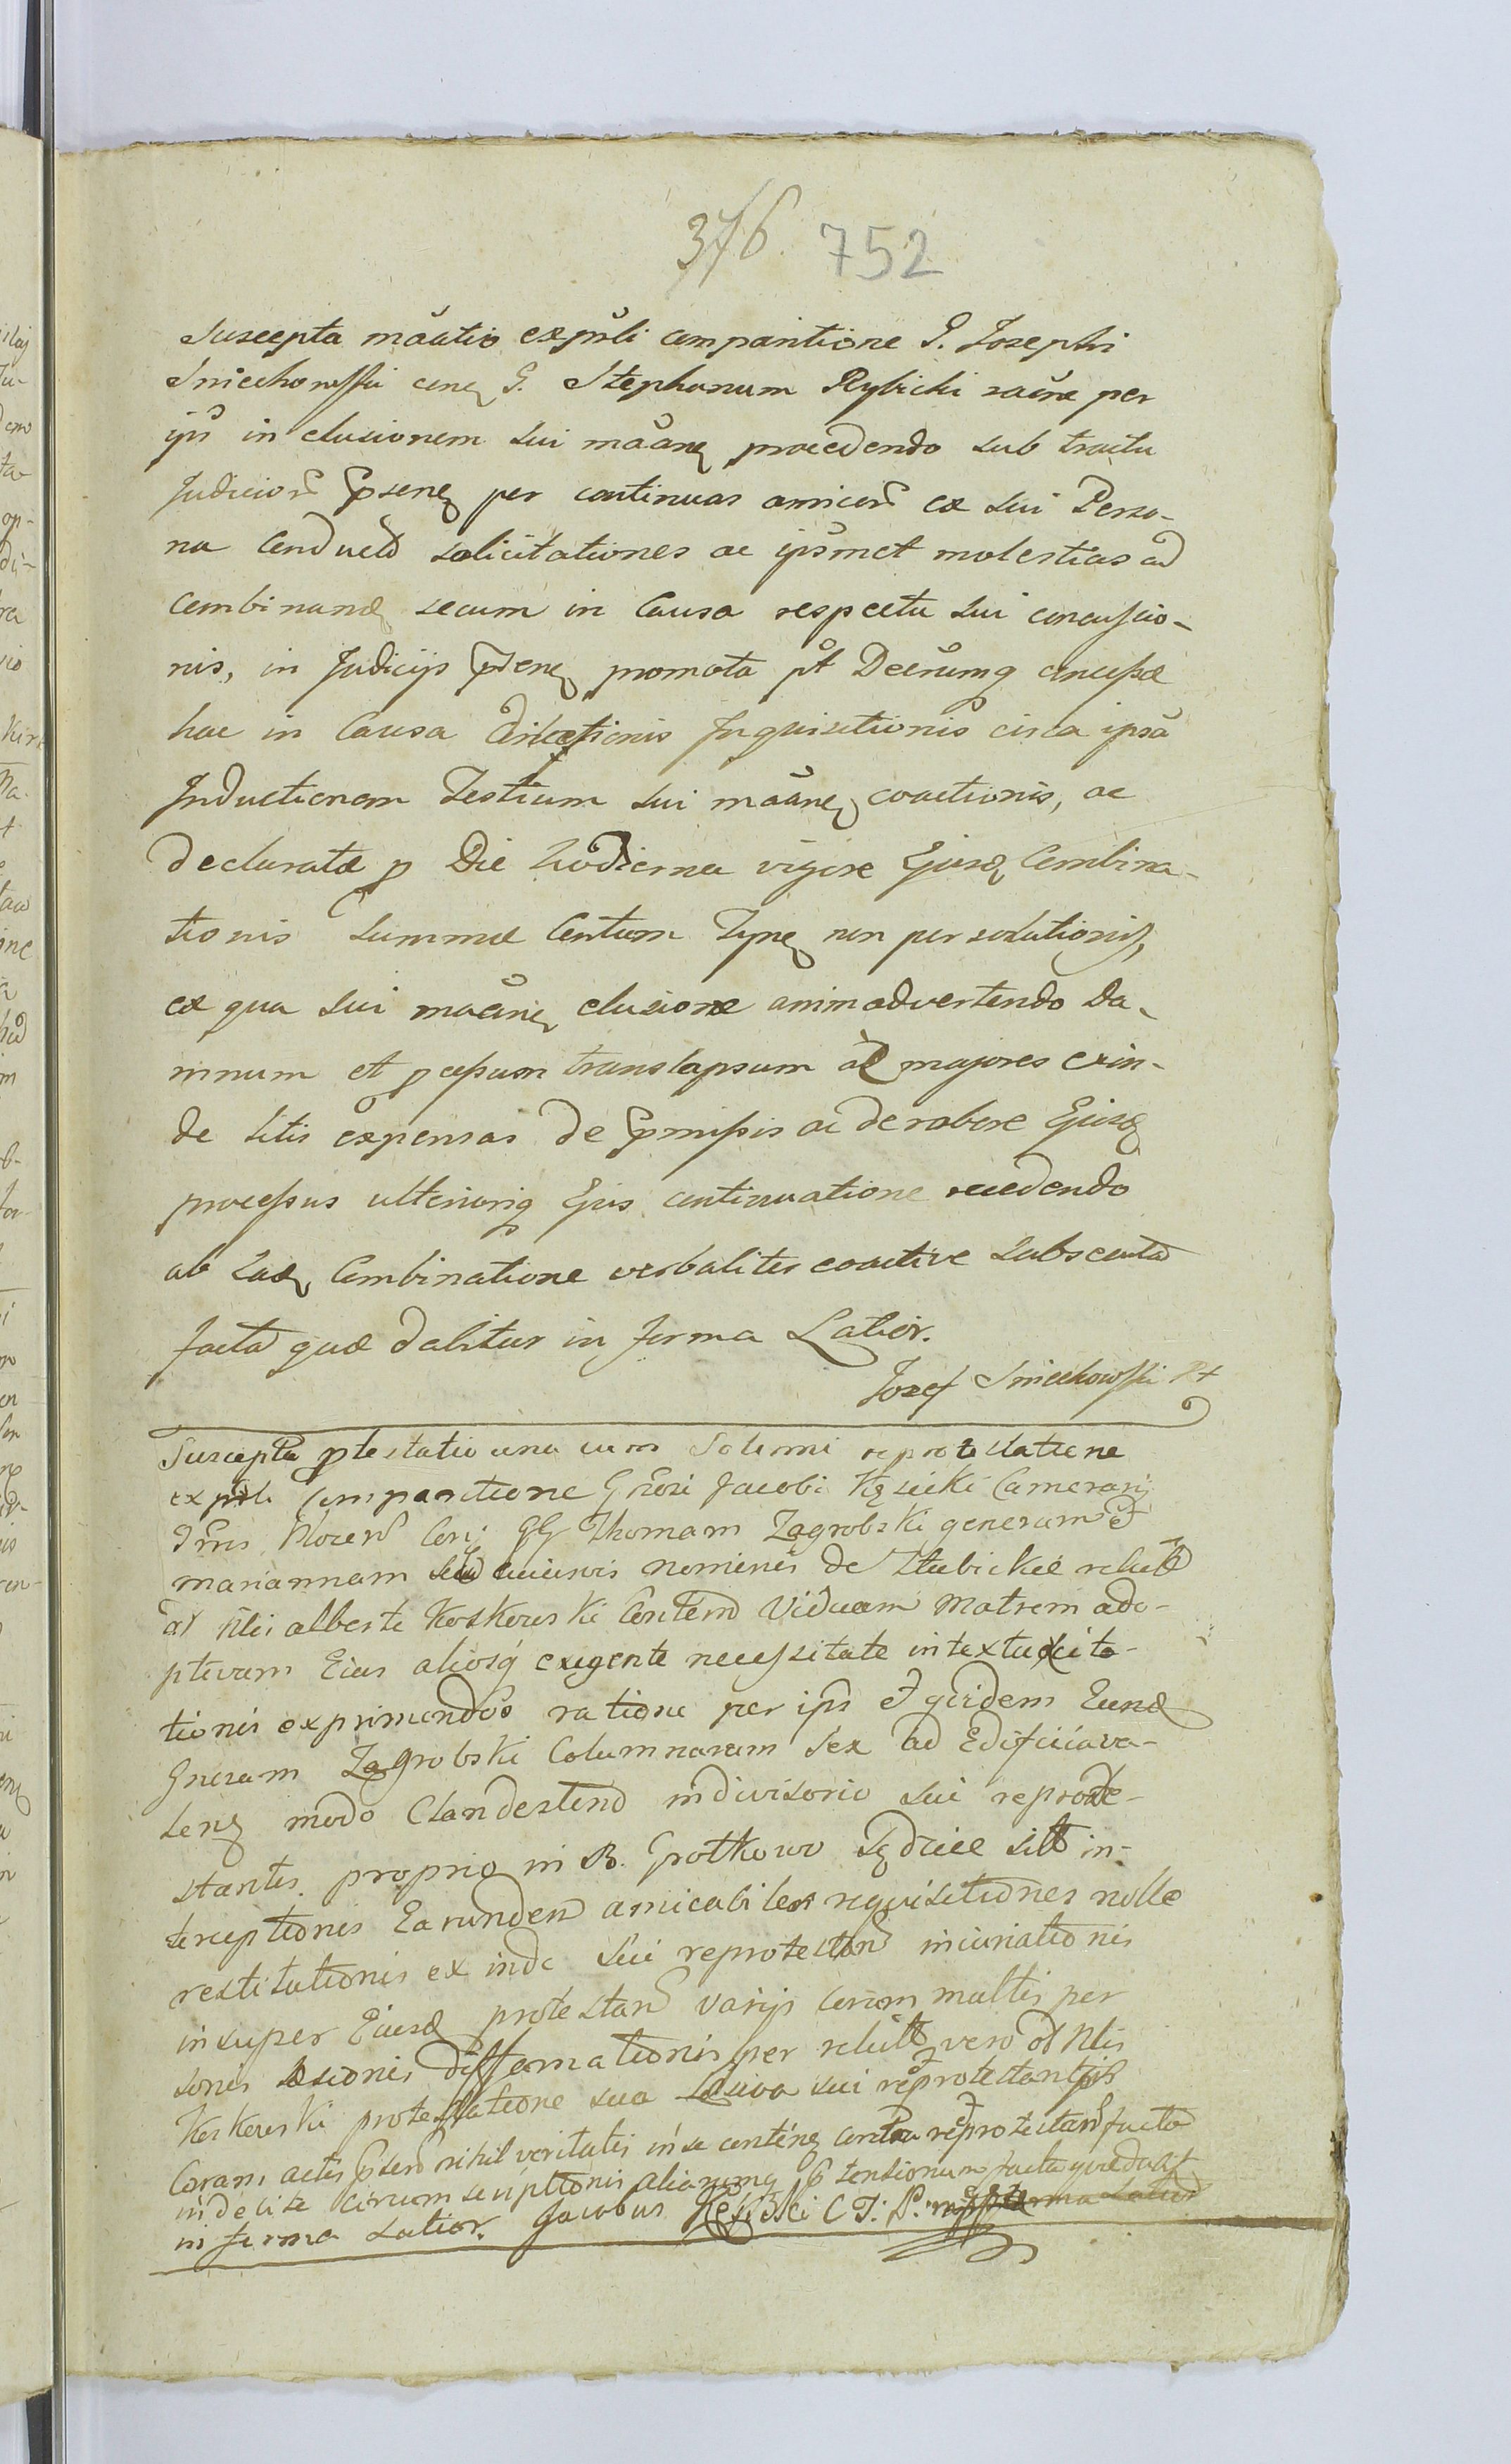 376. 752
Suscepta mããtio ex psñli comparitione G. Josephi
Sniechowski cenɋ G. Stephanum Rybicki raõne per
ipũ in elusionem sui mããnɋ procedendo sub tractu
Judiciorũ pñsenɋ per continuas amicorũ ex sui Perso-
na conductorũ solicitationes ac ipsũmet molestias ad
combinandɋ secum in Causa respectu sui concussio-
nis, in Judicijs pñsenɋ promota pt Decretũmq concussæ
hac in Causa Inquisitionis circa ipsã
Inductionem Testium sui mããnɋ coactionis, ac
declaratæ p Die hodierna vigore Ejusdɋ Combina-
tionis summæ Centum Tynɋ non persolutionis,
ex qua sui mããnɋ elusione animadvertendo Da-
mnum et processum translapsum ac majores exin-
de litis expensas de præmissis ac de robore Ejusdɋ
processus ulteriorisq Ejus continuatione recedendo
ab Eadɋ Combinatione verbaliter coactive
facta quæ dabitur in forma Latior.
Jozef Sniechowski
Suscepta ptestatio una cum Solemni reprotestatione
ex psñli Comparitione Gñrosi Jacobi Kęsicki Camerarij
Trris Plocen Conɋ GG Thomam Zagrobski generum et
mariannam seu cuiusvis nominis de Stubickie relictã
ol Nlis alberti Koskowski Consten Viduam Matrem ado-
ptivam Eius aliosq exigente necessitate in textu cita-
tionis exprimendos ratione per ipũ et quidem Eundɋ
Gnerum Zagrobski Columnarum sex ad Edificia va-
lenɋ modo Clandestino indivisorio sui reprote-
stantis proprio in B. Grotkowo Sędzice sitt in-
terceptionis Earunden amicabiles requisitiones nolle
restitutionis ex inde sui reprotestan iniuriationis
insuper Eiusd protestan varijs coram multis per
sonis diffamationis per relictã vero ol Nlis
Koskowski protestatione sua Lesiva sui reprotestantis
Coram actis psen nihil veritatis in se continɋ contra reprotestan facta
indebite circumscriptionis aliarumq ptensionum facta quæ dabitur
in forma Latior. Jacobus Kęsicki C T: P. mpp